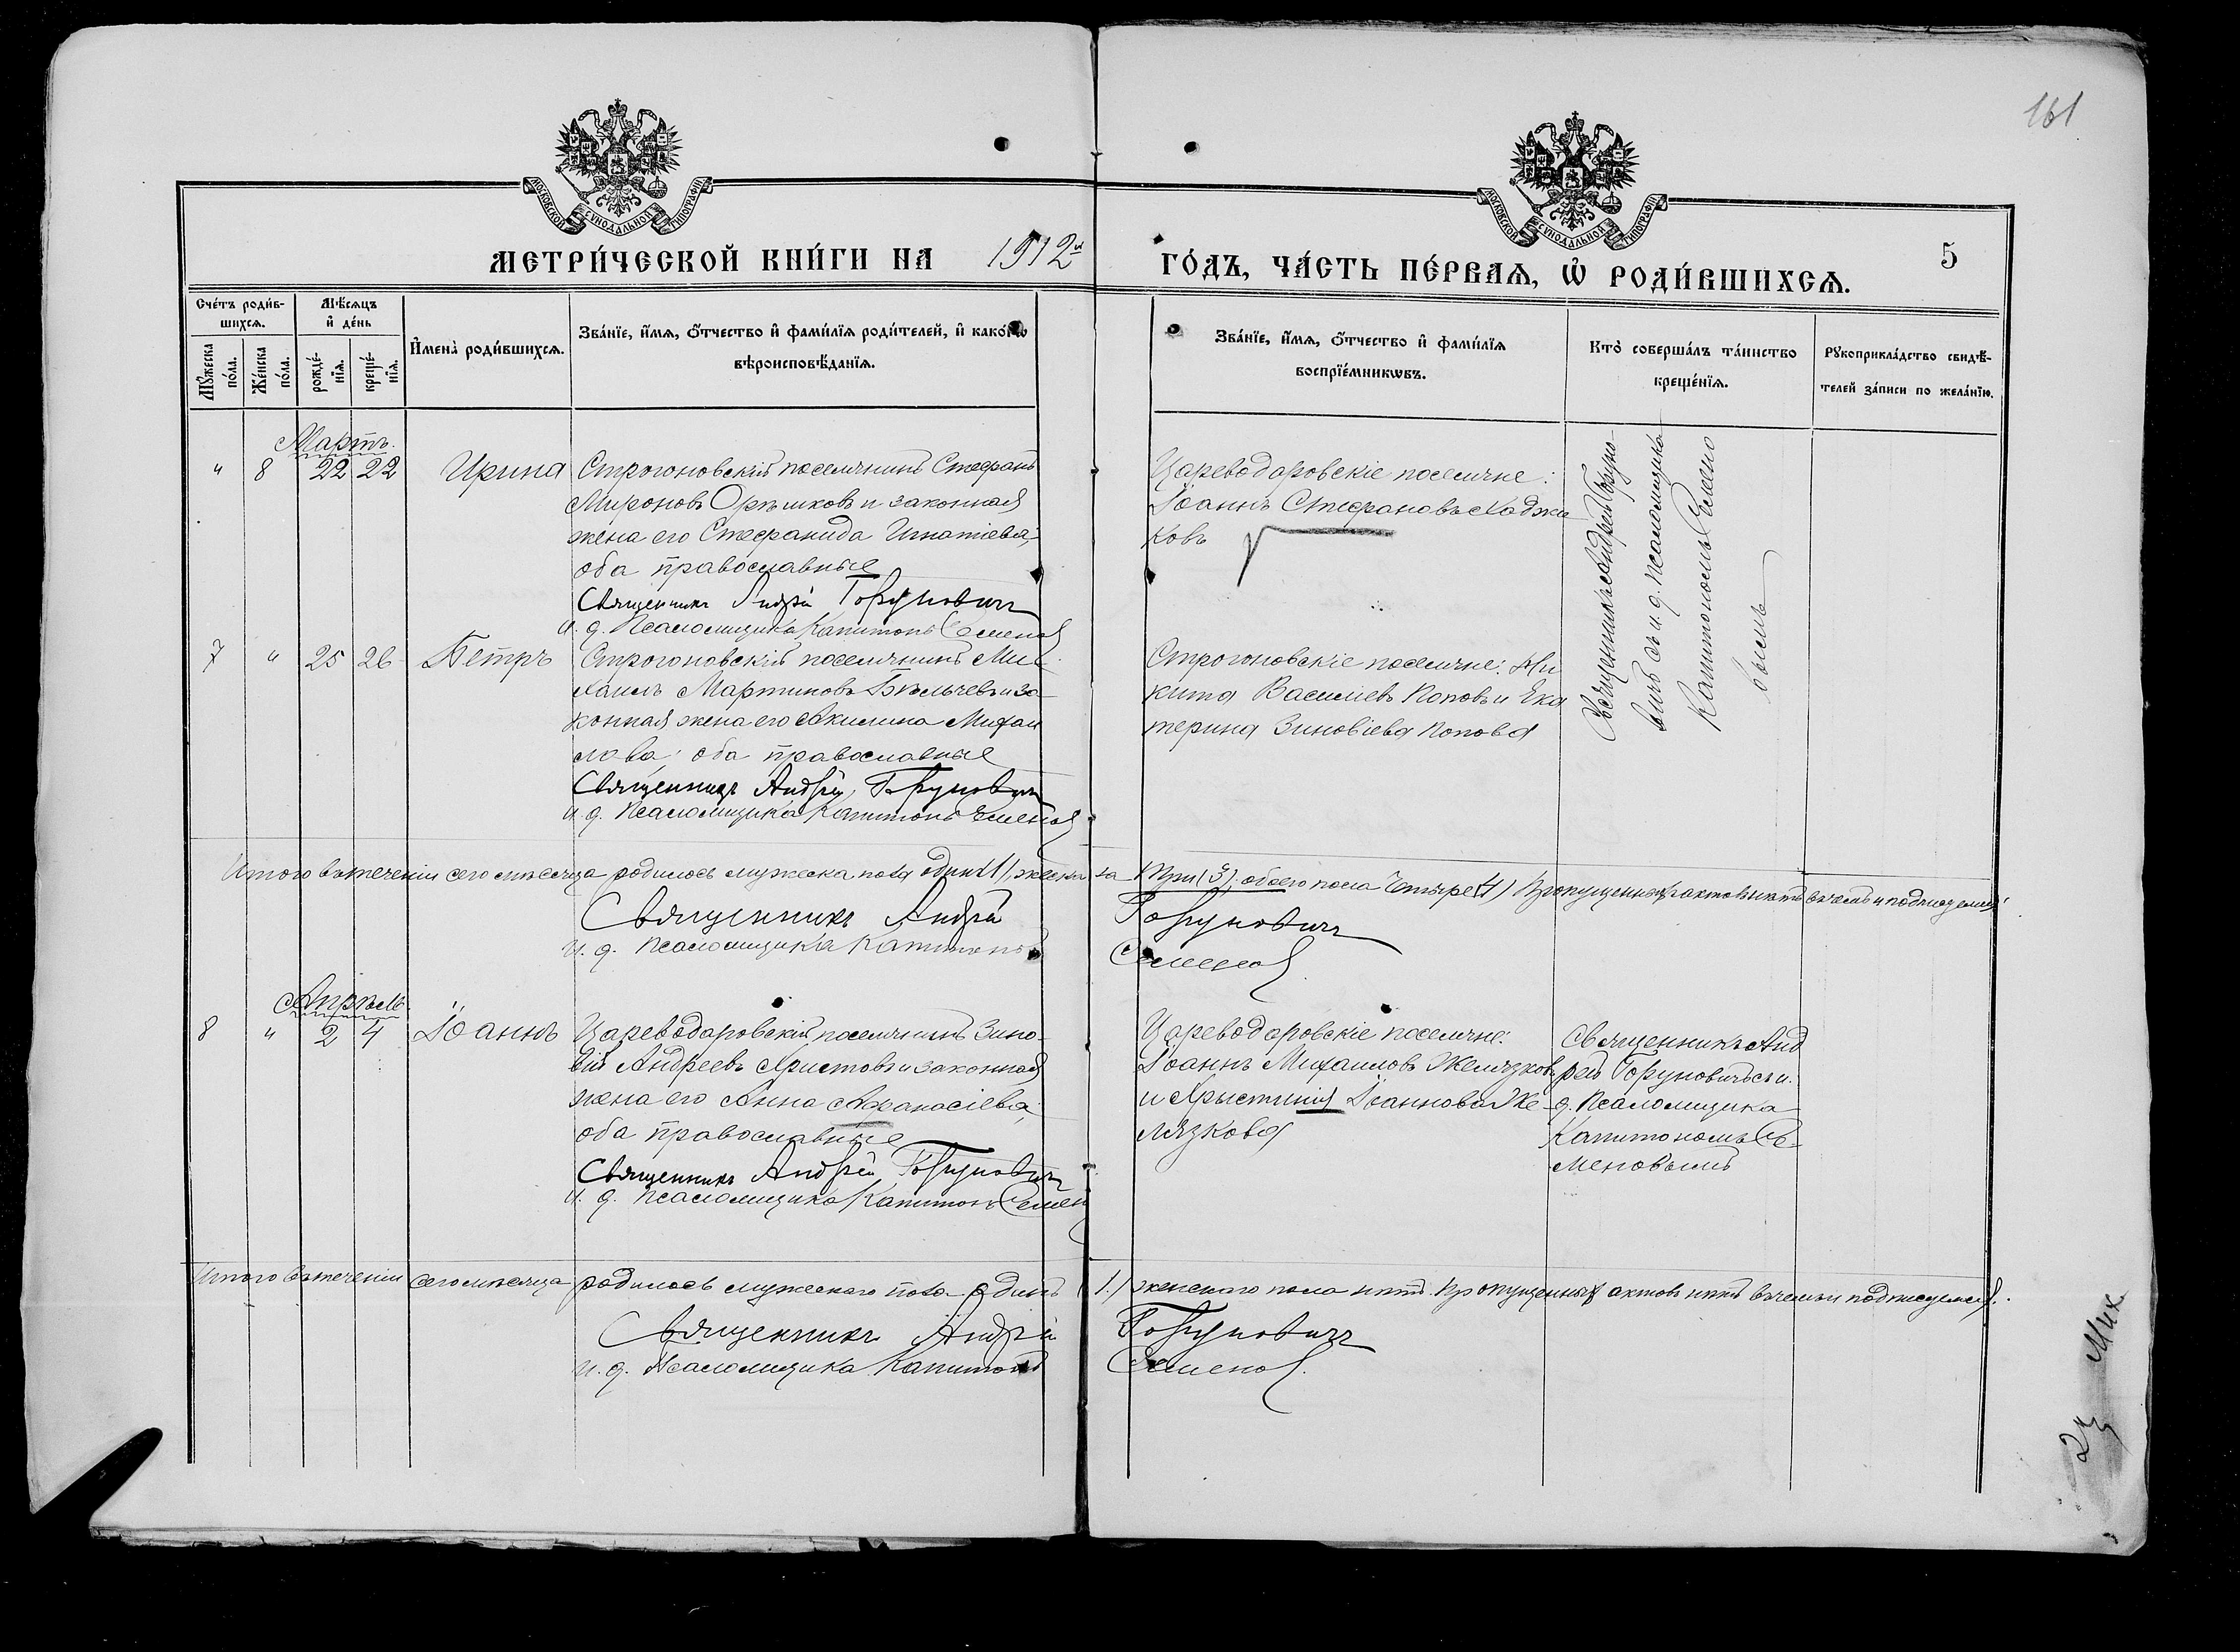 161
МОСКОВСКОЙ СѴНОДАЛЬНОЙ ТИПОГРАФІИ
МОСКОВСКОЙ СѴНОДАЛЬНОЙ ТИПОГРАФІИ
МЕТРИ́ЧЕСКОЙ КНИ́ГИ НА 1912й ГО́ДЪ, ЧА́СТЬ ПЕ́РВАѦ, Ѡ҆ РОДИ́ВШИХСѦ.
5
Счетъ роди́в-
шихсѧ.
Мꙋ́жеска по́ла.
Же́нска по́ла.
Мѣсѧцъ
и҆ де́нь
рожде́-нїѧ.
креще́-нїѧ.
И҆мена̀ роди́вшихсѧ.
Зва́нїе, и҆́мѧ, ѻ҆́тчество и҆ фами́лїѧ роди́телей, и҆ како́гѡ
вѣроисповѣ́данїѧ.
Зва́нїе, и҆́мѧ, ѻ҆́тчество и҆ фами́лїѧ
воспрїе́мникѡвъ.
Кто̀ соверша́лъ та́инство
креще́нїѧ.
Рꙋкоприкла́дство свидѣ́-
телей за́писи по жела́нїю.
Мартъ.
" 8 22 22 Ирина
Строгоновскій поселянинъ Стефанъ
Мироновъ Орѣшковъ и законная
жена его Стефанида Игнатіева,
оба православные
Священникъ Андрей Горуновичъ
и. д. Псаломщика Капитонъ Семенов
Цареводаровскіе поселяне:
Іоаннъ Стефановъ Каджи
ковъ
Священникъ Андрей Горуно-
вичъ съ и. д. Псаломщика
Капитономъ Семено
вымъ
7 " 25 26 Петръ
Строгоновскій поселянинъ Ми-
хаилъ Мартиновъ Бѣльчевъ и за-
конная жена его Акилина Михаи
лова, оба православные
Священникъ Андрей Горуновичъ
и. д. Псаломщика Капитонъ Семенов
Строгоновскіе поселяне: Ни
кита Василіевъ Поповъ и Ека
терина Зиновіева Попова
Итого въ теченіи сего мѣсяца родилось мужеска пола одинъ (1), женска го три (3), обоего пола четыре (4) Пропущенныхъ актовъ нѣтъ въ чемъ и подписуемся
Священникъ Андрей Горуновичъ
и. д. Псаломщика Капитонъ Семенов
Апрѣль.
8 " 2 4 Іоаннъ
Цареводаровскій поселянинъ Зино-
вій Андреевъ Христовъ и законная
жена его Анна Афанасіева,
оба православные
Священникъ Андрей Горуновичъ
и. д. Псаломщика Капитонъ Семен
Цареводаровскіе поселяне:
Іоаннъ Михаиловъ Желязковъ
и Христинія Іоаннова Же-
лязкова
Священникъ Анд
рей Горуновичъ съ и.
д. Псаломщика
Капитономъ Се-
меновымъ
Итого въ теченіи сего мѣсяца родилось мужескаго пола одинъ (1.) женскаго пола нѣтъ. Пропущенныхъ актовъ нѣтъ въ чемъ и подписуемся.
Священникъ Андрей Горуновичъ
и. д. Псаломщика Капитонъ Семенов.